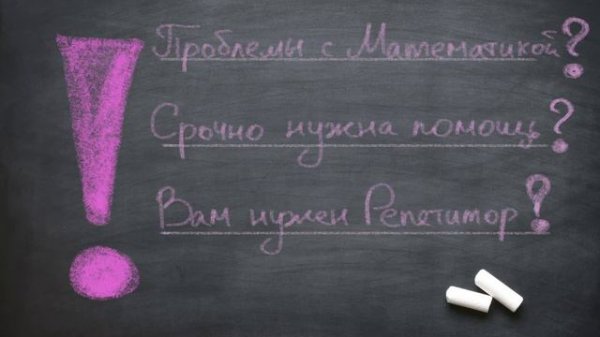 Проблемы с Математикой?
Срочно нужна помощь?
Вам нужен Репетитор?